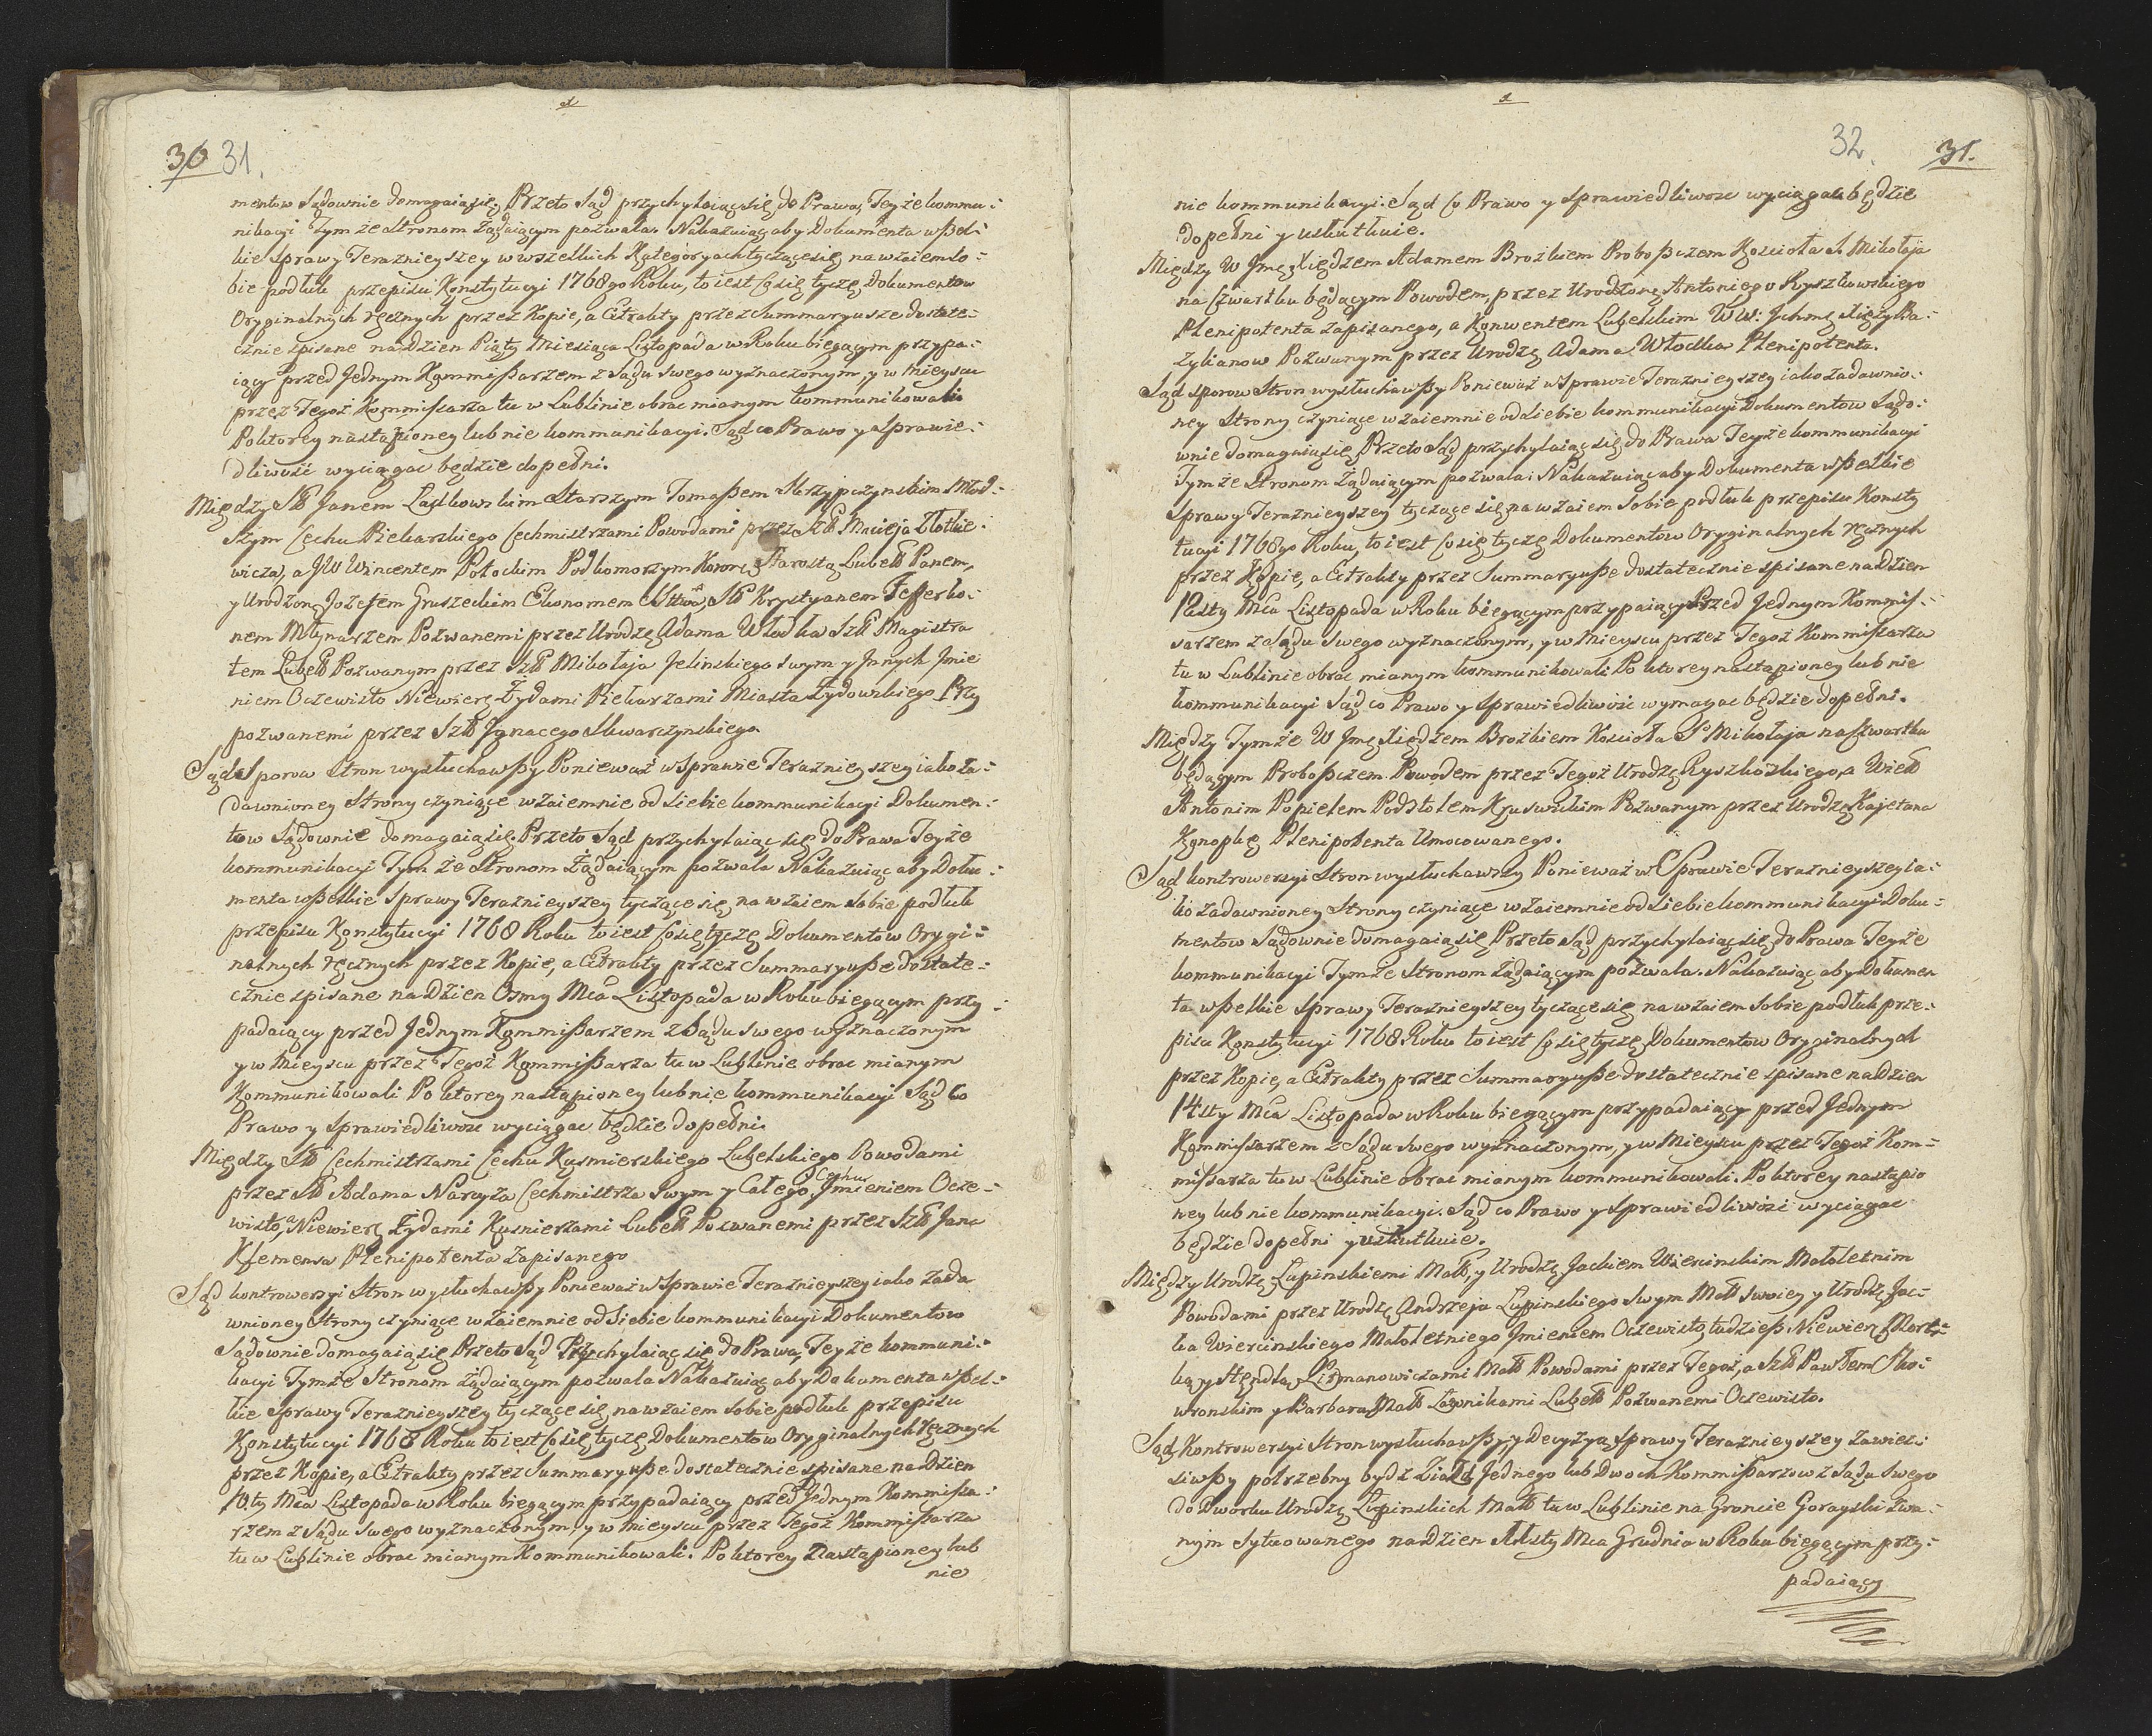 30 31.
mentow Sądownie domagaią się, Przeto Sąd przychylaiąc się do Prawa, Teyże kommu:
nikacyi Tymże Stronom Żądaiącym pozwala. Nakazuiąc aby Dokumenta wszel:
kie Sprawy Teraznieyszey w wszelkich Kategoryach tyczące się nawzaiem so:
bie podług przepisu Konstytucyi 1768go Roku, to iest co się tycze Dokumentow
Oryginalnych ręcznych przez Kopie, a Extrakty przez Summaryusze dostate:
cznie spisane na dzien Piąty Miesiąca Listopada w Roku biegącym przypa:
iący przed Jednym Kommissarzem z Sądu swego wyznaczonym, y w mieyscu
przez Tegoż Kommissarza tu w Lublinie obrac mianym kommunikowali
Poktorey nastąpioney lub nie kommunikacyi. Sąd co Prawo y Sprawie:
dliwość wyciągac będzie dopełni.
Między Sł Janem Laskowskim Starszym Tomaszem Skrzypczynskim Mod:
szym Cechu Piekarskiego Cechmistrzami Powodami przez Sł Macieja Złotkie:
wicza, a JW Wincentem Potockim Podkomorzym Koron Starostą Lubel Panem,
y Urodzon Jozefem Gruszeckim Ekonomem Sł Krystyanem Fefferko:
nem Młynarzem Pozwanemi przez Urodz Adama Włodka Szł Magistra
tem Lubel Pozwanym przez Szł Mikołaja Jelinskiego swym y Jnnych Jmie
niem Oczewisto Niewier Żydami Piekarzami Miasta Żydowskiego Przy
pozwanemi przez Szł Jgnacego Skwarczynskiego
Sąd Sporow Stron wysłuchawszy Ponieważ w Sprawie Teraznieyszey iako za:
dawnioney Strony czyniące wzaiemnie od siebie kommunikacyi Dokumen:
tow Sądownie domagaią się Przeto Sąd przychylaiąc się do Prawa Teyże
kommunikacyi Tym że Stronom Żądaiącym pozwala Nakazuiąc aby Doku:
menta wszelkie Sprawy Teraznieyszey tyczące się nawzaiem sobie podług
przepisu Konstytucyi 1768 Roku to iest co się tycze Dokumentow Orygi:
nalnych ręcznych przez Kopie, a Extrakty przez Summaryusze dostate:
cznie spisane na Dzien Osmy Mca Listopada w Roku biegącym przy:
padaiący przed Jednym Kommissarzem z Sądu swego wyznaczonym
y w Mieyscu przez Tegoż Kommissarza tu w Lublinie obrac mianym
Kommunikowali Po ktorey nastąpioney lub nie kommunikacyi Sąd co
Prawo y Sprawiedliwosc wyciągac będzie dopełni.
Między Sł Cechmistrzami Cechu Kuśmierskiego Lubelskiego Powodami
przez Sł Adama Narcyza Cechmistrza swym y Całego Cechu Jmieniem Ocze:
wisto, a Niewier Żydami Kusnierzami Lubel Pozwanemi przez Szł Jana
Klemensa Plenipotenta Zapisanego
Sąd kontrowersyi Stron wysłuchawszy Ponieważ w Sprawie Teraznieyszey iako Zada
wnioney Strony czyniące wzaiemnie od Siebie kommunikacyi Dokumentow
Sądownie domagaią się Przeto Sąd Przychylaiąc się do Prawa, Teyże kommuni:
kacyi Tymże Stronom żądaiącym pozwala Nakazuiąc aby Dokumenta wszel:
kie Sprawy Teraznieyszey tyczące się nawzaiem sobie podług przepisu
Konstytucyi 1768 Roku to iest co się tycze Dokumentow Oryginalnych Ręcznych
przez Kopie, a Extrakty przez Summaryusze dostatecznie spisane na Dzien
10ty Mca Listopada w Roku biegącym przypadaiący przed Jednym Kommissa:
rzem z Sądu swego wyznaczonym, y w mieyscu przez Tegoż Kommissarza
tu w Lublinie obrac mianym Kommunikowali. Poktorey Nastąpioney lub
nie
32. 31.
nie kommunikacyi. Sąd co Prawo y Sprawiedliwosc wyciągac będzie
dopełni y uskutkuie.
Między W Jmc Xiędzem Adamem Brozkiem Proboszczem Koscioła S. Mikołaja
na Czwartku będącym Powodem, przez Urodzone Antoniego Ryszkowskiego
Plenipotenta zapisanego, a Konwentem Lubelskim WW: Jchmc Xięży Ba:
zylianow Pozwanym przez Urodz Adama Włodka Plenipotenta.
Sąd sporow Stron wysłuchawszy Ponieważ w Sprawie Teraznieyszey iako zadawnio:
ney Strony czyniące wzaiemnie od siebie kommunikacyi Dokumentow Sądo:
wnie domagaią się, Przeto Sąd przychylaiąc się do Prawa Teyże kommunikacyi
Tymże Stronom Żądaiącym pozwala: Nakazuiąc aby Dokumenta wszelkie
Sprawy Teraznieyszey tyczące się nawzaiem sobie podług przepisu Konsty
tucyi 1768go Roku, to iest co się tycze Dokumentow Oryginalnych ręcznych
przez Kopie, a Extrakty przez Summaryusze dostatecznie spisane na dzien
12sty Mca Listopada w Roku biegącym przypaiący Przed Jednym Kommis:
sarzem z Sądu swego wyznaczonym, y w mieyscu przez Tegoż Kommissarza
tu w Lublinie obrac mianym kommunikowali Po ktorey nastąpioney lub nie
kommunikacyi Sąd co Prawo y Sprawiedliwość wymagac będzie dopełni.
Między Tymże W Jmc Xiędzem Brożkiem Koscioła S Mikołaja na Czwartku
będącym Proboszczem Powodem przez Tegoż Urodz Ryszkoskiego, a Wiel
Antonim Popielem Podstolem Kruswickim Pozwanym przez Urodz Kajetana
Konopkę Plenipotenta Umocowanego.
Sąd kontrowersyi Stron wysłuchawszy Ponieważ w Sprawie Teraznieyszey ia:
ko zadawnioney Strony czyniące wzaiemnie od siebie kommunikacyi Doku:
mentow Sądownie domagaią się Przeto Sąd przychylaiąc się do Prawa Teyże
kommunikacyi Tymże Stronom żądaiącym pozwala. Nakazuiąc aby Dokumen
ta wszelkie Sprawy Teraznieyszey tyczące się nawzaiem sobie podług prze:
pisu Konstytucyi 1768 Roku to iest co się tycze Dokumentow Oryginalnych
przez Kopie, a Extrakty przez Summaryusze dostatecznie spisane na Dzien
14sty Mca Listopada w Roku biegącym przypadaiący przed Jednym
Kommissarzem z Sądu swego wyznaczonym, y w Mieyscu przez Tegoż Kom=
missarza tu w Lublinie obrac mianym kommunikowali. Po ktorey nastąpio
ney lub nie kommunikacyi. Sąd co Prawo y Sprawiedliwości wyciągac
będzie dopełni y uskutkuie.
Między Urodz Łupinskiemi Małł, y Urodz Jackiem Wiercinskim Małoletnim
Powodami przez Urodz Andrzeja Łupinskiego swym Małł swoiey y Urodz Jac:
ka Wiercinskiego Małoletniego Jmieniem Oczewisto, tudziesz Niewier
y Lizmanowiczami Małł Powodami przez Tegoż, a Szł Pawłem Sko:
wronskim y Barbarą Małł Ławnikami Lubel Pozwanemi Oczewisto.
Sąd Kontrowersyi Stron wysłuchawszy, y Decyzyą Sprawy Teraznieyszey zawie:
siwszy potrzebny bydz Ziazd Jednego lub Dwoch Kommissarzow z Sądu swego
do Dworku Urodz Łupinskich Małł tu w Lublinie na Groncie Gorayski zwa:
nym sytuowanego na dzien Mca Grudnia w Roku biegącym przy:
padaiący